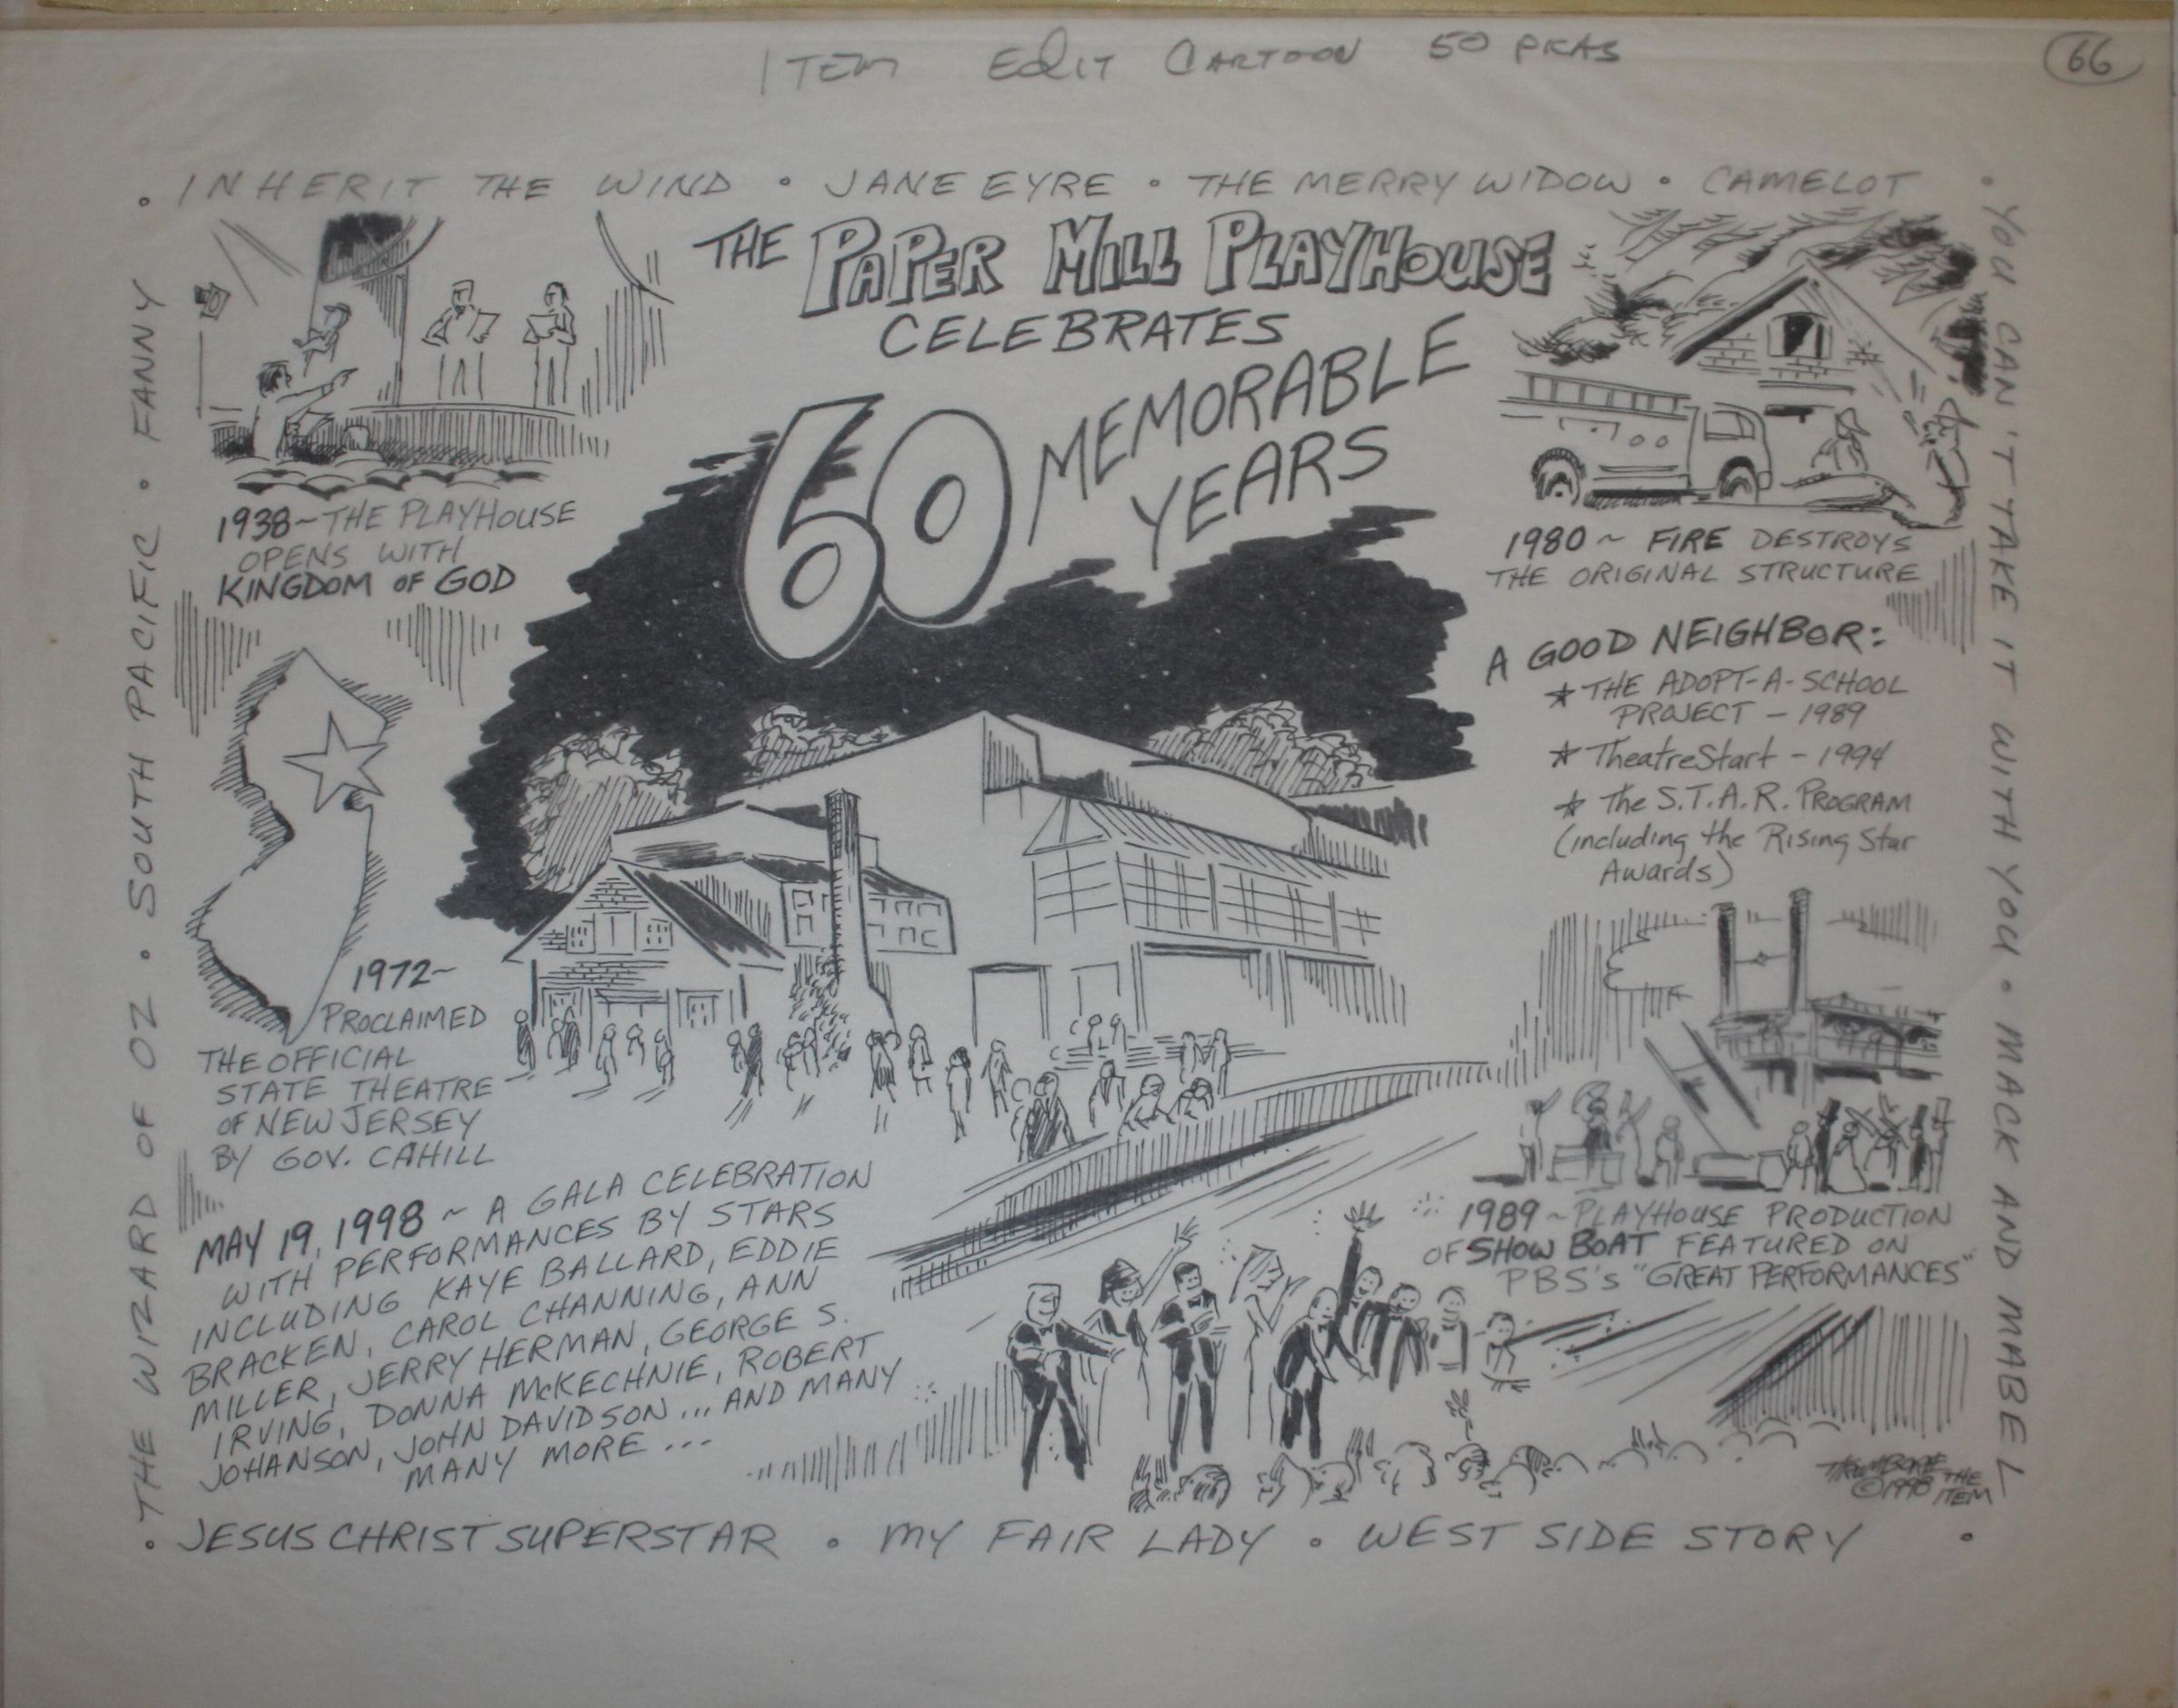 ITEM Edit CARTOON 50 PICAS
66
• INHERIT THE WIND • JANE EYRE • THE MERRY WIDOW • CAMELOT
• YOU CAN'T TAKE IT WITH YOU • MACK AND MABEL
• THE WIZARD OF OZ • SOUTH PACIFIC • FANNY
THE PAPER MILL PLAYHOUSE
CELEBRATES
60 MEMORABLE
YEARS
1938~THE PLAYHOUSE
OPENS WITH
KINGDOM OF GOD
1980 ~ FIRE DESTROYS
THE ORIGINAL STRUCTURE
A GOOD NEIGHBOR:
★ THE ADOPT-A-SCHOOL
PROJECT - 1989
★ TheatreStart - 1994
★ The S.T.A.R. PROGRAM
(including the Rising Star
Awards)
1972~
PROCLAIMED
THE OFFICIAL
STATE THEATRE
OF NEW JERSEY
BY GOV. CAHILL
1989 ~ PLAYHOUSE PRODUCTION
OF SHOW BOAT FEATURED ON
PBS's "GREAT PERFORMANCES"
MAY 19, 1998 ~ A GALA CELEBRATION
WITH PERFORMANCES BY STARS
INCLUDING KAYE BALLARD, EDDIE
BRACKEN, CAROL CHANNING, ANN
MILLER, JERRY HERMAN, GEORGE S.
IRVING, DONNA McKECHNIE, ROBERT
JOHANSON, JOHN DAVIDSON ... AND MANY
MANY MORE ...
©1998 THE
ITEM
• JESUS CHRIST SUPERSTAR • MY FAIR LADY • WEST SIDE STORY •